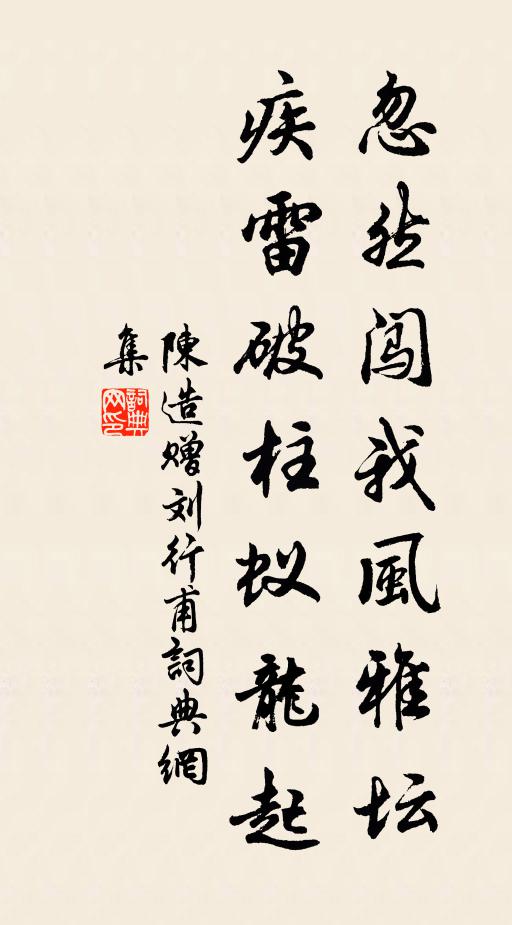 忽然闯我風雅坛
疾雷破柱蚁龍起
陳造赠刘行甫詞典網
集
詞典
网印